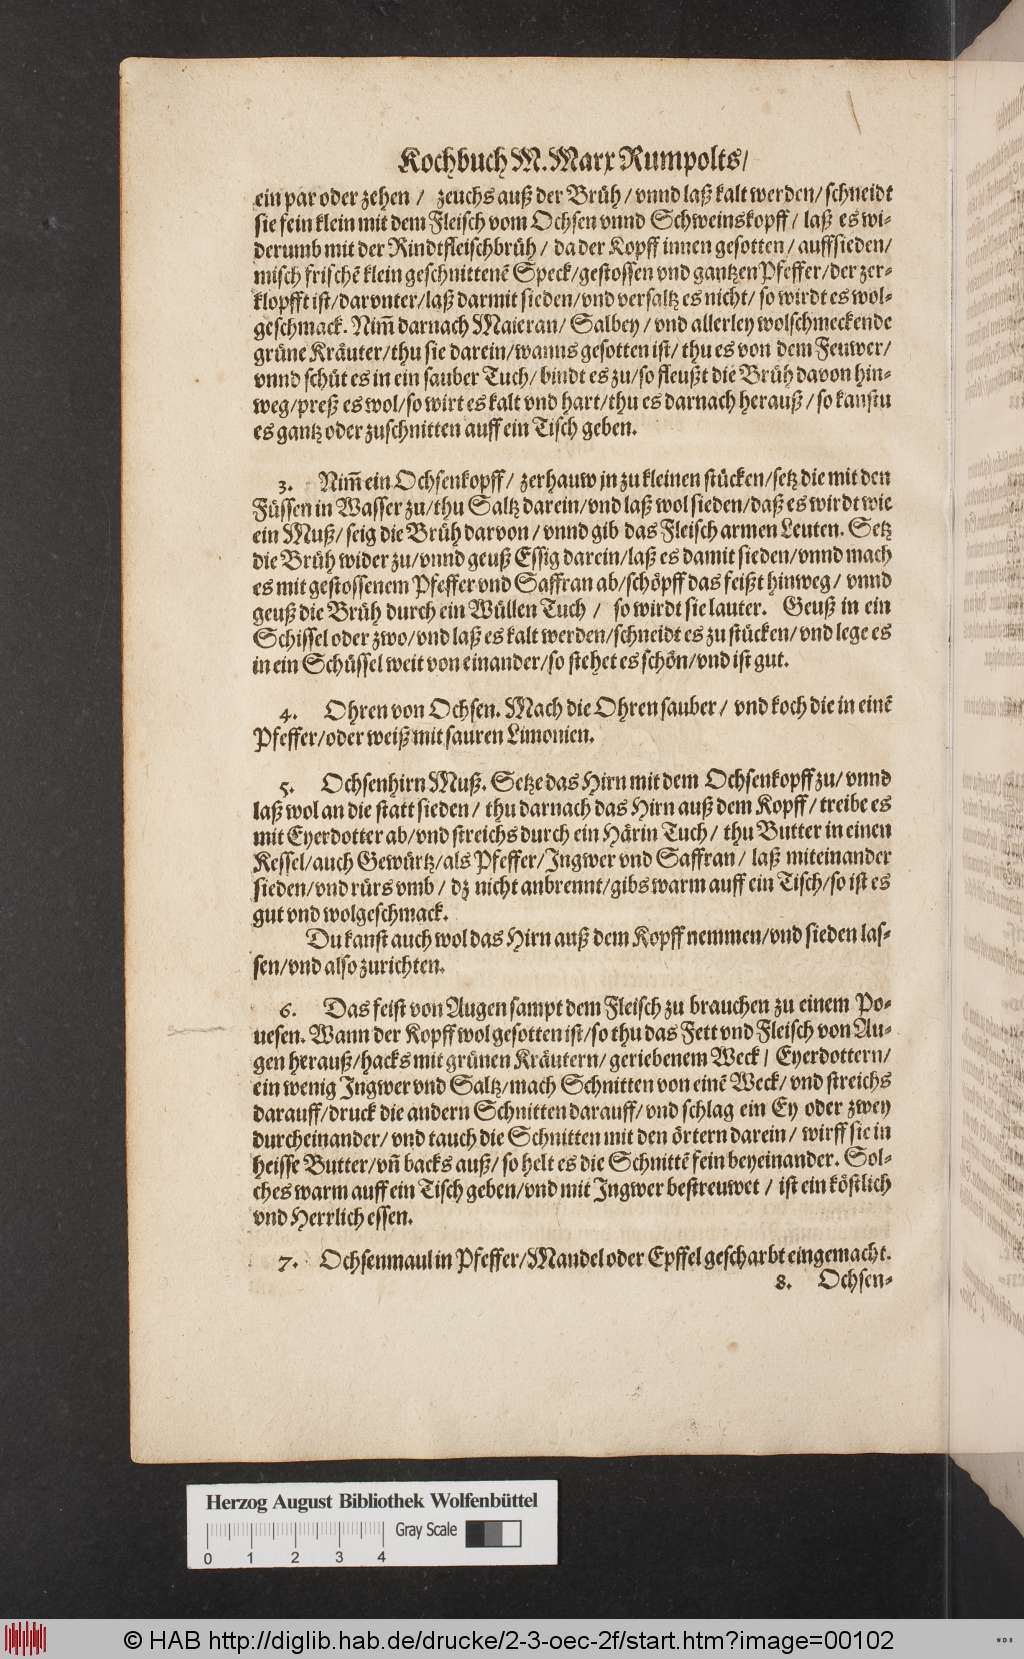 Kochbuch M. Marx Rumpolts/
ein par oder zehen / zeuchs auß der Brüh / vnnd laß kalt werden / schneidt
sie fein klein mit dem Fleisch vom Ochsen vnnd Schweinskopff / laß es wi-
derumb mit der Rindtfleischbrüh / da der Kopff innen gesotten / auffsieden /
misch frischē klein geschnittenē Speck / gestossen vnd gantzen Pfeffer / der zer-
klopfft ist / darvnter / laß darmit sieden / vnd versaltz es nicht / so wirdt es wol-
geschmack. Nim̄ darnach Maieran / Salbey / vnd allerley wolschmeckende
grüne Kräuter / thu sie darein / wanns gesotten ist / thu es von dem Feuwer /
vnnd schüt es in ein sauber Tuch / bindt es zu / so fleußt die Brüh davon hin-
weg / preß es wol / so wirt es kalt vnd hart / thu es darnach herauß / so kanstu
es gantz oder zuschnitten auff ein Tisch geben.
3. Nim̄ ein Ochsenkopff / zerhauw jn zu kleinen stücken / setz die mit den
Füssen in Wasser zu / thu Saltz darein / vnd laß wol sieden / daß es wirdt wie
ein Muß / seig die Brüh darvon / vnnd gib das Fleisch armen Leuten. Setz
die Brüh wider zu / vnnd geuß Essig darein / laß es damit sieden / vnnd mach
es mit gestossenem Pfeffer vnd Saffran ab / schöpff das feißt hinweg / vnnd
geuß die Brüh durch ein Wüllen Tuch / so wirdt sie lauter. Geuß in ein
Schissel oder zwo / vnd laß es kalt werden / schneidt es zu stücken / vnd lege es
in ein Schüssel weit von einander / so stehet es schön / vnd ist gut.
4. Ohren von Ochsen. Mach die Ohren sauber / vnd koch die in einē
Pfeffer / oder weiß mit sauren Limonien.
5. Ochsenhirn Muß. Setze das Hirn mit dem Ochsenkopff zu / vnnd
laß wol an die statt sieden / thu darnach das Hirn auß dem Kopff / treibe es
mit Eyerdotter ab / vnd streichs durch ein Härin Tuch / thu Butter in einen
Kessel / auch Gewürtz / als Pfeffer / Ingwer vnd Saffran / laß miteinander
sieden / vnd rürs vmb / dz nicht anbrennt / gibs warm auff ein Tisch / so ist es
gut vnd wolgeschmack.
Du kanst auch wol das Hirn auß dem Kopff nemmen / vnd sieden las-
sen / vnd also zurichten.
6. Das feist von Augen sampt dem Fleisch zu brauchen zu einem Po-
uesen. Wann der Kopff wol gesotten ist / so thu das Fett vnd Fleisch von Au-
gen herauß / hacks mit grünen Kräutern / geriebenem Weck / Eyerdottern /
ein wenig Ingwer vnd Saltz / mach Schnitten von einē Weck / vnd streichs
darauff / druck die andern Schnitten darauff / vnd schlag ein Ey oder zwey
durcheinander / vnd tauch die Schnitten mit den örtern darein / wirff sie in
heisse Butter / vn̄ backs auß / so helt es die Schnittē fein beyeinander. Sol-
ches warm auff ein Tisch geben / vnd mit Ingwer bestreuwet / ist ein köstlich
vnd Herrlich essen.
7. Ochsenmaul in Pfeffer / Mandel oder Epffel gescharbt eingemacht.
8. Ochsen-
Herzog August Bibliothek Wolfenbüttel
Gray Scale
0 1 2 3 4
© HAB http://diglib.hab.de/drucke/2-3-oec-2f/start.htm?image=00102